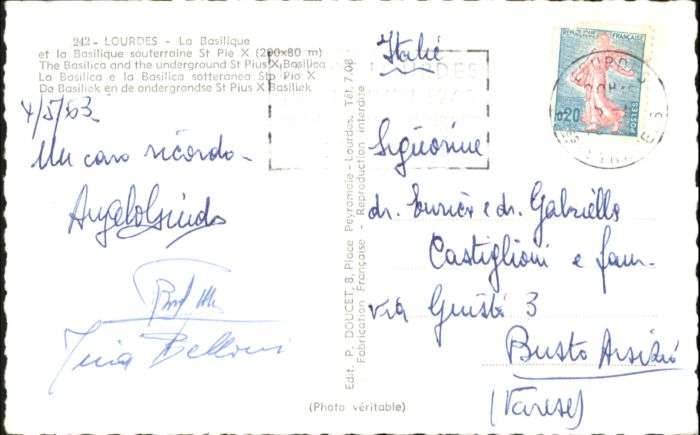 242 - LOURDES - La Basilique
et la Basilique souterraine St Pie X (200x80 m)
The Basilica and the underground St Pius X Basilica
La Basilica e la Basilica sotteranea Sto Pio X
De Basiliek en de ondergrondse St Pius X Basiliek
4/5/63
Un caro ricordo -
Tina Belloni
Edit. P. DOUCET, 8, Place Peyramale - Lourdes. Tél. 7.08
Fabrication Française - Reproduction interdite
(Photo véritable)
LOURDES
REPUBLIQUE FRANÇAISE
0,20
POSTES
Italie
Signorine
dr. Enrica e dr. Gabriella
Castiglioni e fam.
via Giusti 3
Busto Arsizio
(Varese)